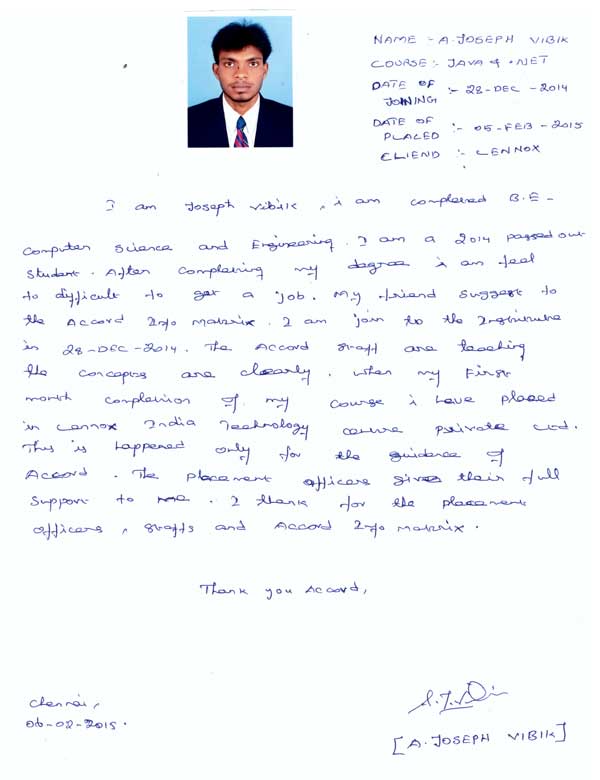 NAME :- A. JOSEPH VIBIK
COURSE :- JAVA & .NET
DATE OF JOINING :- 28-DEC-2014
DATE OF PLACED :- 05-FEB-2015
CLIEND :- LENNOX
I am Joseph Vibik, i am complered B.E-
Computer Science and Engineering. I am a 2014 passed out
Student. After Complering my degree i am feel
to difficult to get a job. My friend Suggest to
the Accord Info Matrix. I am join to the Instritute
in 28-DEC-2014. The Accord Staff are teaching
the concepts are clearly. When my First
month complerion of my course i have placed
in Lennox India Technology centre private Ltd.
This is happened only for the guidence of
Accord. The placement officers gives their full
Support to me. I thank for the placement
officers, staffs and Accord Info Matrix.
Thank you Accord,
Chennai,
06-02-2015.
[A. JOSEPH VIBIK]